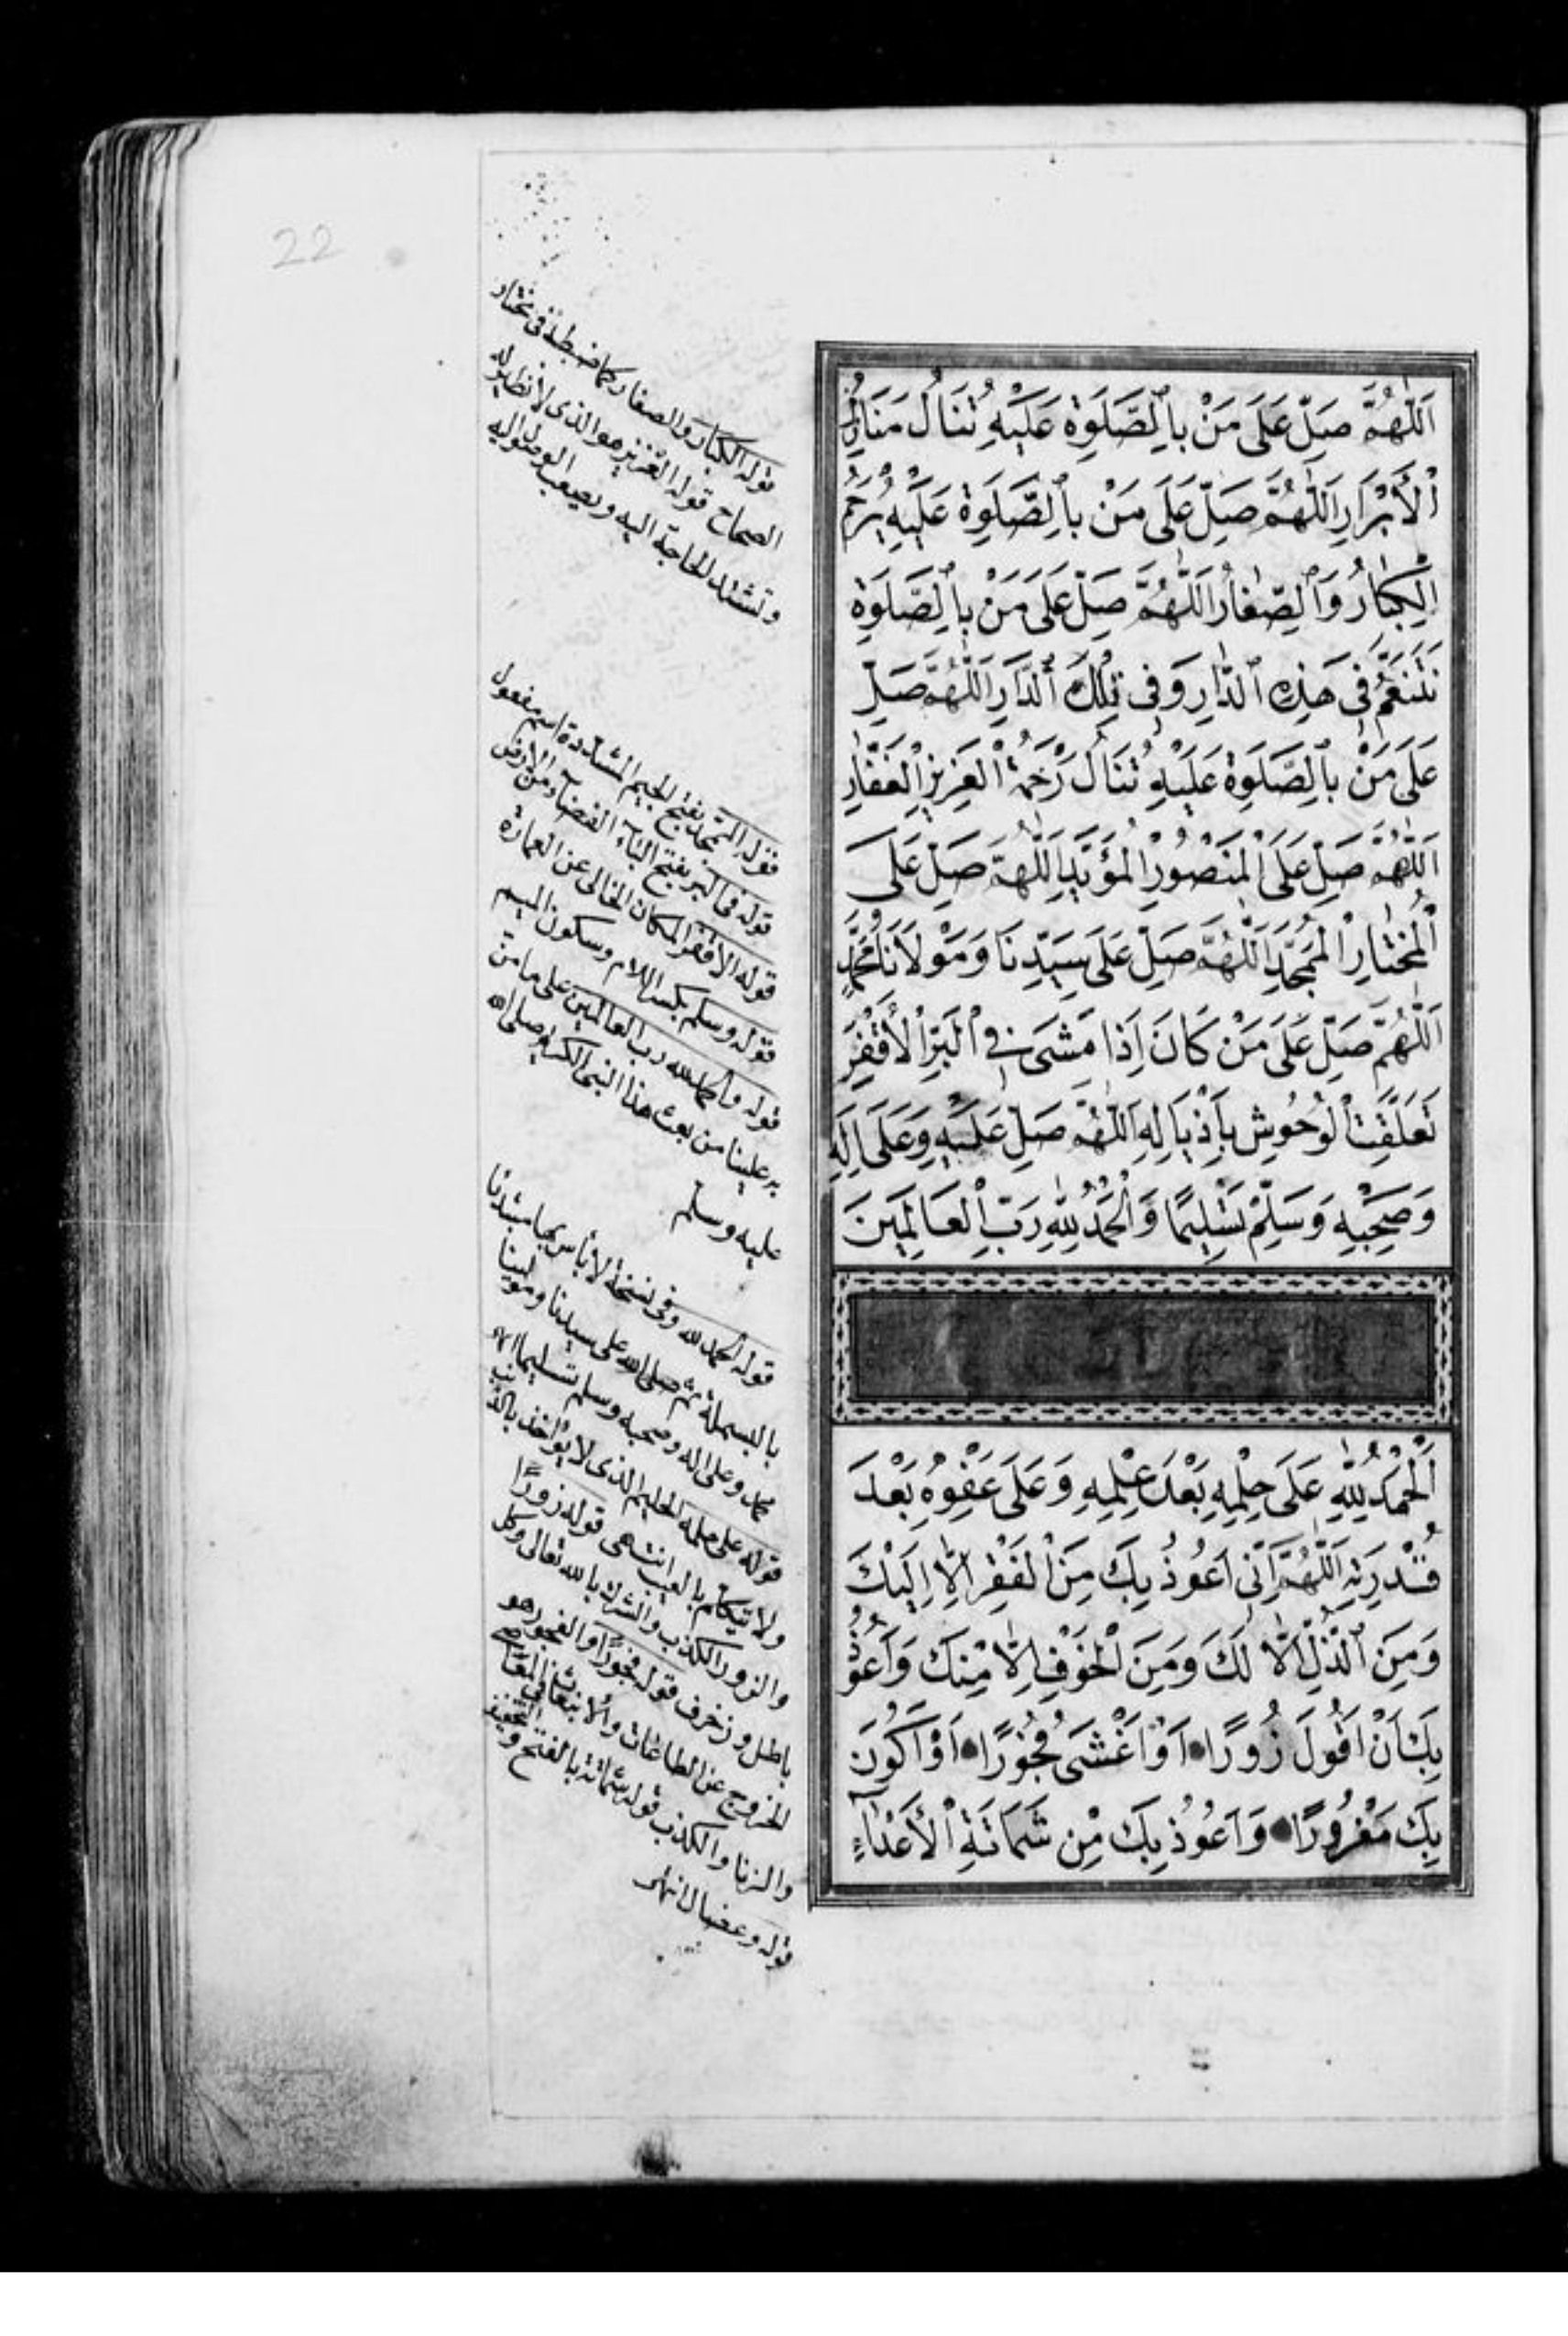 22
اَللّٰهُمَّ صَلِّ عَلَى مَنْ بِالصَّلٰوةِ عَلَيْهِ تُنَالُ مَنَازِلُ
الْأَبْرَارِ اَللّٰهُمَّ صَلِّ عَلَى مَنْ بِالصَّلٰوةِ عَلَيْهِ يُرْحَمُ
الْكِبَارُ وَالصِّغَارُ اَللّٰهُمَّ صَلِّ عَلَى مَنْ بِالصَّلٰوةِ
نَتَنَعَّمُ فِى هٰذِهِ الدَّارِ وَفِى تِلْكَ الدَّارِ اَللّٰهُمَّ صَلِّ
عَلَى مَنْ بِالصَّلٰوةِ عَلَيْهِ تُنَالُ رَحْمَةُ الْعَزِيزِ الْغَفَّارِ
اَللّٰهُمَّ صَلِّ عَلَى الْمَنْصُورِ الْمُؤَيَّدِ اَللّٰهُمَّ صَلِّ عَلَى
الْمُخْتَارِ الْمُمَجَّدِ اَللّٰهُمَّ صَلِّ عَلَى سَيِّدِنَا وَمَوْلَانَا مُحَمَّدٍ
اَللّٰهُمَّ صَلِّ عَلَى مَنْ كَانَ اِذَا مَشَى فِى الْبَرِّ الْأَقْفَرِ
تَعَلَّقَتِ الْوُحُوشُ بِاَذْيَالِهِ اَللّٰهُمَّ صَلِّ عَلَيْهِ وَعَلَى اٰلِهِ
وَصَحْبِهِ وَسَلِّمْ تَسْلِيمًا وَالْحَمْدُ لِلّٰهِ رَبِّ الْعَالَمِينَ
اَلْحَمْدُ لِلّٰهِ عَلَى حِلْمِهِ بَعْدَ عِلْمِهِ وَعَلَى عَفْوِهِ بَعْدَ
قُدْرَتِهِ اَللّٰهُمَّ اِنِّى اَعُوذُ بِكَ مِنَ الْفَقْرِ اِلَّا اِلَيْكَ
وَمِنَ الذُّلِّ اِلَّا لَكَ وَمِنَ الْخَوْفِ اِلَّا مِنْكَ وَاَعُوذُ
بِكَ اَنْ اَقُولَ زُورًا اَوْ اَغْشَى فُجُورًا اَوْ اَكُونَ
بِكَ مَغْرُورًا وَاَعُوذُ بِكَ مِنْ شَمَاتَةِ الْأَعْدَاءِ
قوله الكبار والصغار كما ضبطه فى مختار
الصحاح قوله العزيز هو الذى لا نظير له
وتشتد الحاجة اليه ويصعب الوصول اليه
قوله الممجد بفتح الجيم المشددة اسم مفعول
قوله فى البر بفتح الباء الفضاء من الارض
قوله الاقفر المكان الخالى عن العمارة
قوله وسلم بكسر اللام وسكون الميم
قوله والحمد لله رب العالمين على ما من
به علينا من بعث هذا النبى الكريم صلى الله
عليه وسلم
قوله الحمد لله وفى نسخة لا بأس بها مبتدئا
بالبسملة ثم صلى الله على سيدنا ومولينا
محمد وعلى اله وصحبه وسلم تسليما انتهى
قوله على حلمه الحليم الذى لا يؤاخذ بالذنب
ولا يتكلم بالعيب انتهى قوله زورًا
والزور الكذب والشرك بالله تعالى وكل
باطل وزخرف قوله فجورًا والفجور هو
الخروج عن الطاعات والانبعاث فى المعاصى
والزنا والكذب قوله شماتة بالفتح والتخفيف
قوله وعضال انتهى